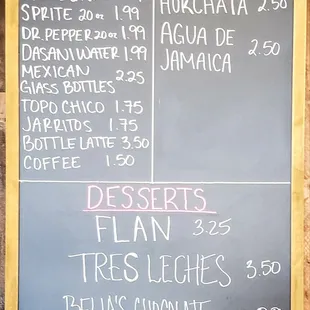 SPRITE 20oz 1.99
DR. PEPPER 20oz 1.99
DASANI WATER 1.99
MEXICAN
GLASS BOTTLES 2.25
TOPO CHICO 1.75
JARRITOS 1.75
BOTTLE LATTE 3.50
COFFEE 1.50
HORCHATA 2.50
AGUA DE
JAMAICA 2.50
DESSERTS
FLAN 3.25
TRES LECHES 3.50
CHOCOLATE